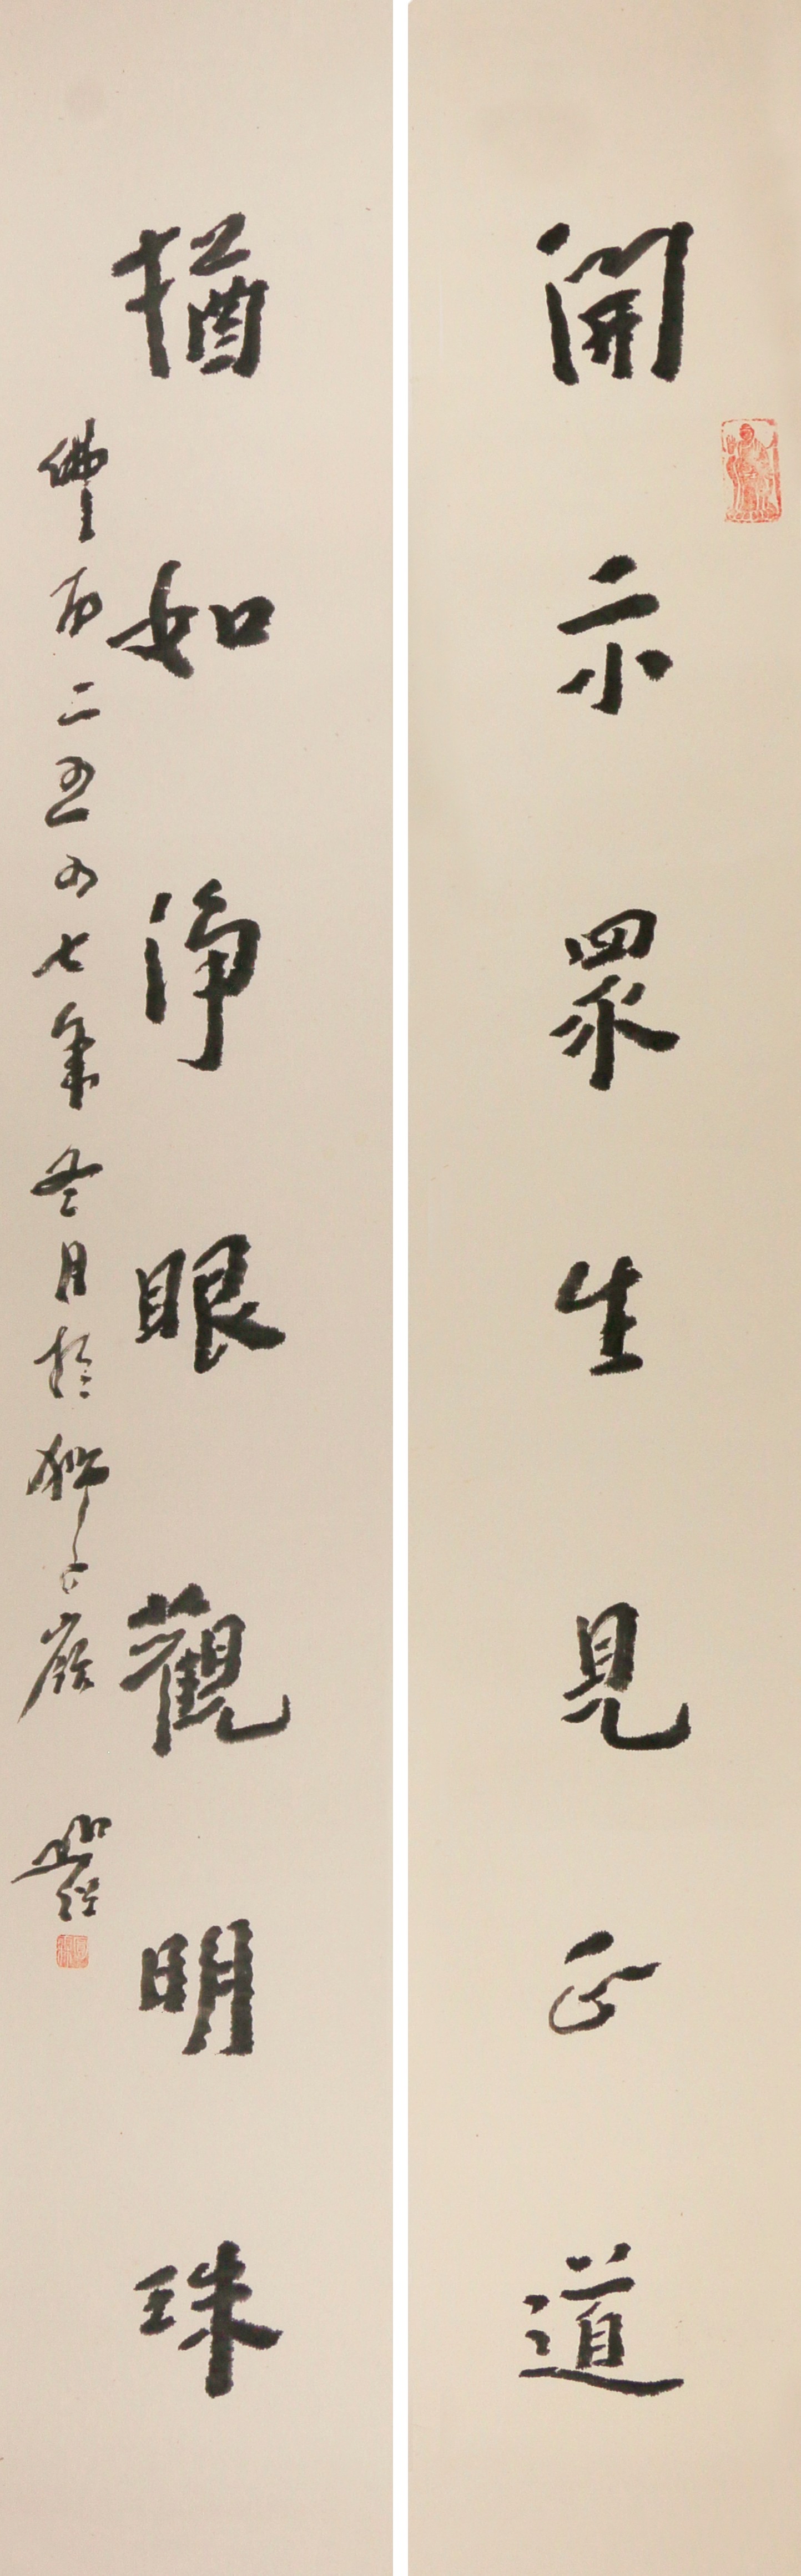 開示眾生見正道
猶如淨眼觀明珠
佛历二五五七年冬月於獅子巖